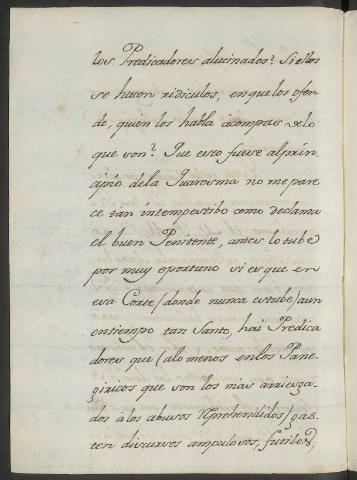 los Predicadores alucinados? Si ellos
se hacen ridiculos, en que los ofen
de, quien los habla a compas de lo
que son? Que esto fuese al prin
cipio de la Quaresma no me pare
ce tan intempestibo como declama
el buen Penitente, antes lo tube
por muy oportuno si es que en
esa Corte (donde nunca estube) aun
en tiempo tan Santo, hai Predica
dores que (a lo menos en los Pane
giricos que son los mas arriesga
dos à los abusos reprehendidos) gas
ten discursos ampulosos, futiles,